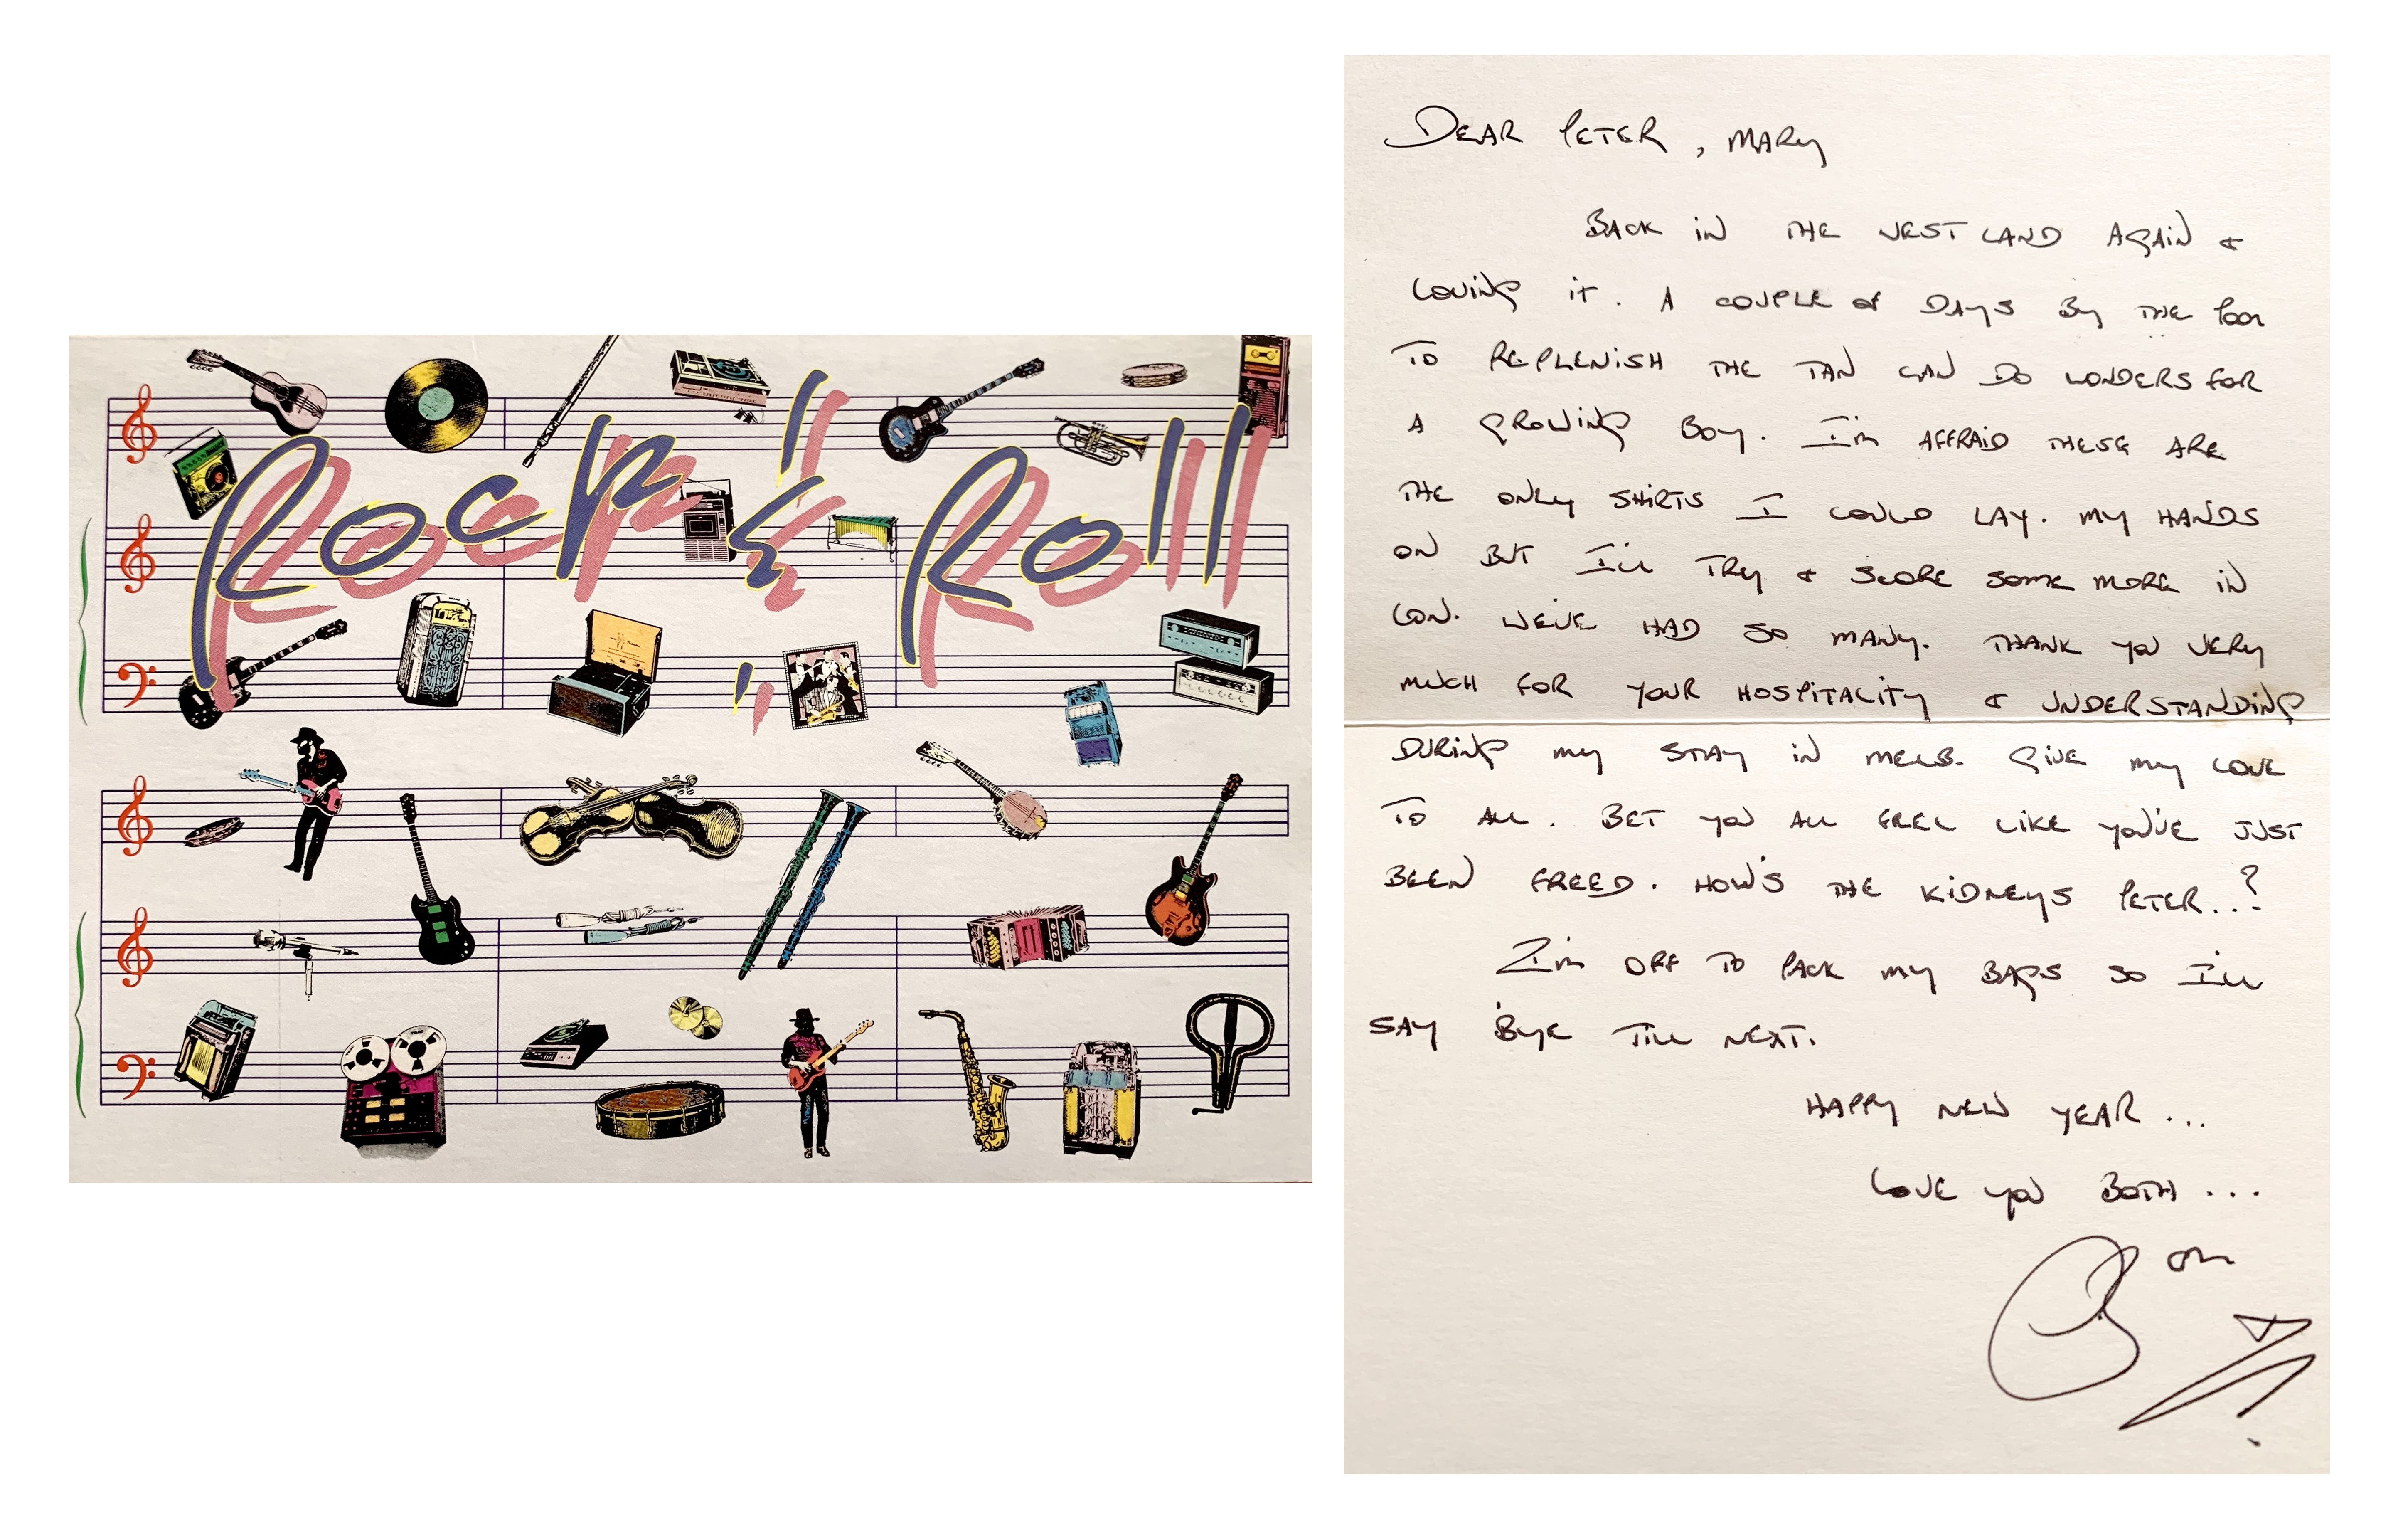 Rock & Roll
DEAR PETER, MARY
BACK IN THE WEST LAND AGAIN &
LOVING IT. A COUPLE OF DAYS BY THE POOL
TO REPLENISH THE TAN CAN DO WONDERS FOR
A GROWING BOY. I'M AFFRAID THESE ARE
THE ONLY SHIRTS I COULD LAY. MY HANDS
ON BUT I'LL TRY & SCORE SOME MORE IN
LON. WE'VE HAD SO MANY. THANK YOU VERY
MUCH FOR YOUR HOSPITALITY & UNDERSTANDING
DURING MY STAY IN MELB. GIVE MY LOVE
TO ALL. BET YOU ALL FEEL LIKE YOU'VE JUST
BEEN FREED. HOW'S THE KIDNEYS PETER...?
I'M OFF TO PACK MY BAGS SO I'LL
SAY 'BYE TILL NEXT.
HAPPY NEW YEAR...
LOVE YOU BOTH...